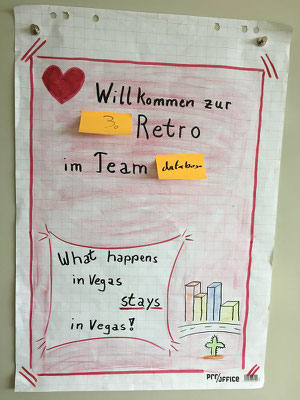 Willkommen zur
3. Retro
im Team database
What happens
in Vegas
stays
in Vegas!
pro/office